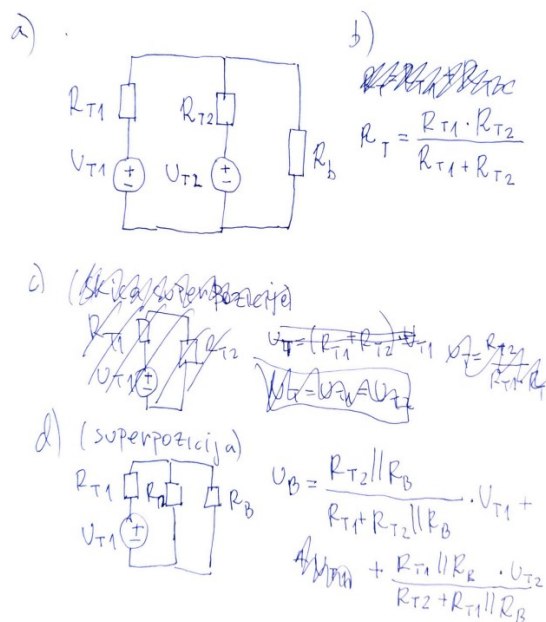 a)
R_T1 R_T2 R_b
U_T1 U_T2
b)
R_T = \frac{R_T1 · R_T2}{R_T1 + R_T2}
c) (skica superpozicija)
R_T1 R_T2
U_T1
U_T = (R_T1 + R_T2) · U_T1
d) (superpozicija)
R_T1 R_B
U_T1
U_B = \frac{R_T2 || R_B}{R_T1 + R_T2 || R_B} · U_T1 +
+ \frac{R_T1 || R_B}{R_T2 + R_T1 || R_B} · U_T2